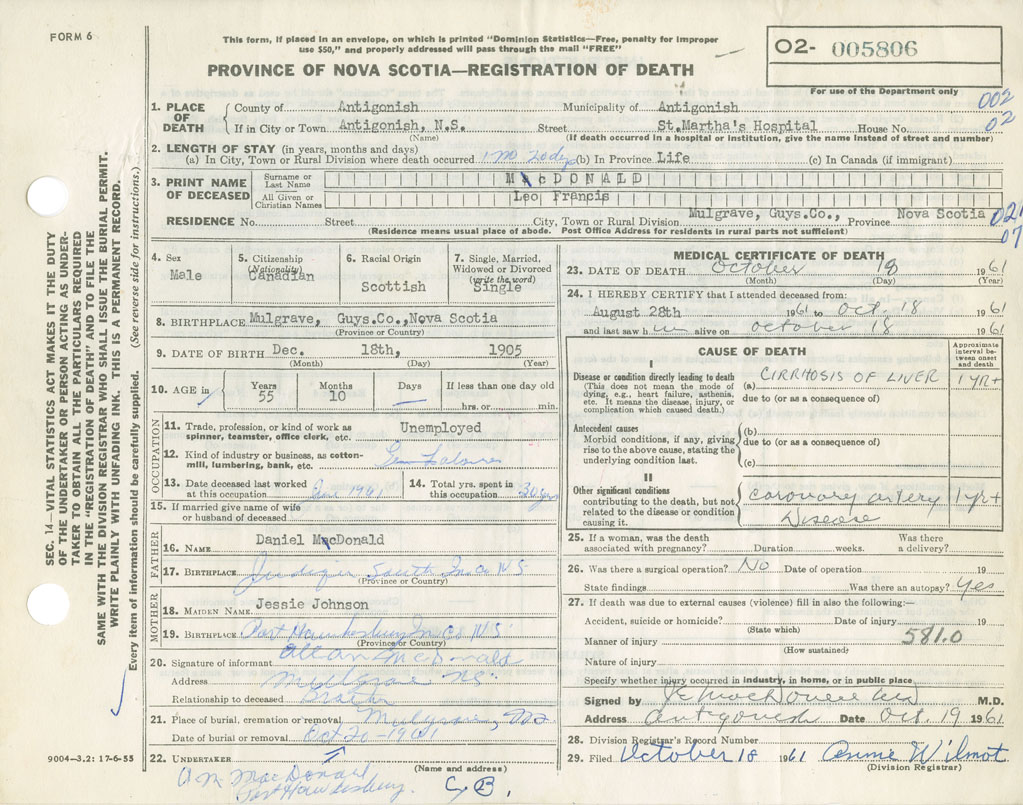 FORM 6
This form, if placed in an envelope, on which is printed "Dominion Statistics—Free, penalty for improper
use $50," and properly addressed will pass through the mail "FREE"
PROVINCE OF NOVA SCOTIA—REGISTRATION OF DEATH
02- 005806
For use of the Department only
002
02
1. PLACE OF DEATH
County of Antigonish Municipality of Antigonish
If in City or Town Antigonish, N.S. Street St.Martha's Hospital House No.
(Name) (If death occurred in a hospital or institution, give the name instead of street and number)
2. LENGTH OF STAY (in years, months and days)
(a) In City, Town or Rural Division where death occurred 1 mo 20 dys (b) In Province Life (c) In Canada (if immigrant)
3. PRINT NAME OF DECEASED
Surname or Last Name MacDONALD
All Given or Christian Names Leo Francis
RESIDENCE No. Street City, Town or Rural Division Mulgrave, Guys.Co., Province Nova Scotia 021
07
(Residence means usual place of abode. Post Office Address for residents in rural parts not sufficient)
4. Sex
Male
5. Citizenship
(Nationality)
Canadian
6. Racial Origin
Scottish
7. Single, Married, Widowed or Divorced
(write the word)
Single
8. BIRTHPLACE Mulgrave, Guys.Co.,Nova Scotia
(Province or Country)
9. DATE OF BIRTH Dec. 18th, 1905
(Month) (Day) (Year)
10. AGE in
Years 55
Months 10
Days —
If less than one day old
hrs. or min.
OCCUPATION
11. Trade, profession, or kind of work as
spinner, teamster, office clerk, etc. Unemployed
12. Kind of industry or business, as cotton-
mill, lumbering, bank, etc.
13. Date deceased last worked
at this occupation June 1961
14. Total yrs. spent in
this occupation 30 yrs
15. If married give name of wife
or husband of deceased
FATHER
16. NAME Daniel MacDonald
17. BIRTHPLACE Judique South In. Co N S
(Province or Country)
MOTHER
18. MAIDEN NAME Jessie Johnson
19. BIRTHPLACE Port Hawkesbury In Co N S
(Province or Country)
20. Signature of informant Allan McDonald
Address Mulgrave NS
Relationship to deceased Brother
21. Place of burial, cremation or removal Mulgrave, N.S.
Date of burial or removal Oct 20 - 1961
22. UNDERTAKER
(Name and address)
A.M. MacDonald
Port Hawkesbury.
MEDICAL CERTIFICATE OF DEATH
23. DATE OF DEATH October 18 1961
(Month) (Day) (Year)
24. I HEREBY CERTIFY that I attended deceased from:
August 28th 1961 to Oct. 18 1961
and last saw him alive on October 18 1961
CAUSE OF DEATH
Approximate interval between onset and death
I
Disease or condition directly leading to death
(This does not mean the mode of
dying, e.g., heart failure, asthenia,
etc. It means the disease, injury, or
complication which caused death.)
(a) CIRRHOSIS OF LIVER 1 YR+
due to (or as a consequence of)
Antecedent causes
Morbid conditions, if any, giving
rise to the above cause, stating the
underlying condition last.
(b)
due to (or as a consequence of)
(c)
II
Other significant conditions
contributing to the death, but not
related to the disease or condition
causing it.
Coronary artery 1 yr+
Disease
25. If a woman, was the death
associated with pregnancy? Duration weeks. Was there
a delivery?
26. Was there a surgical operation? No Date of operation 19
State findings Was there an autopsy? Yes
27. If death was due to external causes (violence) fill in also the following:—
Accident, suicide or homicide? Date of injury 19
(State which)
Manner of injury 581.0
(How sustained)
Nature of injury
Specify whether injury occurred in industry, in home, or in public place
Signed by M.D.
Address Antigonish Date Oct. 19 1961
28. Division Registrar's Record Number
29. Filed October 18 1961 Annie Wilmot
(Division Registrar)
9004—3.2: 17-6-55
SEC. 14—VITAL STATISTICS ACT MAKES IT THE DUTY
OF THE UNDERTAKER OR PERSON ACTING AS UNDER-
TAKER TO OBTAIN ALL THE PARTICULARS REQUIRED
IN THE "REGISTRATION OF DEATH" AND TO FILE THE
SAME WITH THE DIVISION REGISTRAR WHO SHALL ISSUE THE BURIAL PERMIT.
WRITE PLAINLY WITH UNFADING INK. THIS IS A PERMANENT RECORD.
Every item of information should be carefully supplied. (See reverse side for instructions.)